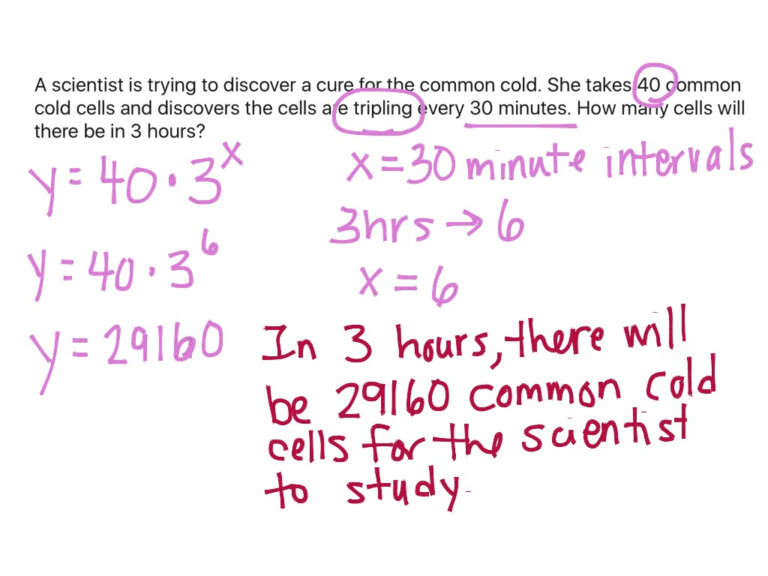 A scientist is trying to discover a cure for the common cold. She takes 40 common
cold cells and discovers the cells are tripling every 30 minutes. How many cells will
there be in 3 hours?
y = 40 · 3^x
x = 30 minute intervals
3hrs → 6
y = 40 · 3^6
x = 6
y = 29160
In 3 hours, there will
be 29160 common cold
cells for the scientist
to study.